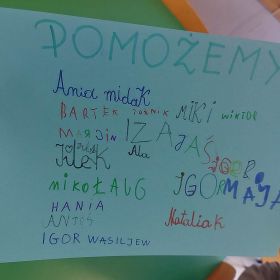 POMOŻEMY
Ania midak
BARTEK MIKI WIKTOR
MARCIN IZAJAŚ
Ala
IGOR B.
MIKOŁAJ G IGOR MAJA
HANIA
ANTOŚ Natalia K
IGOR WASILJEW